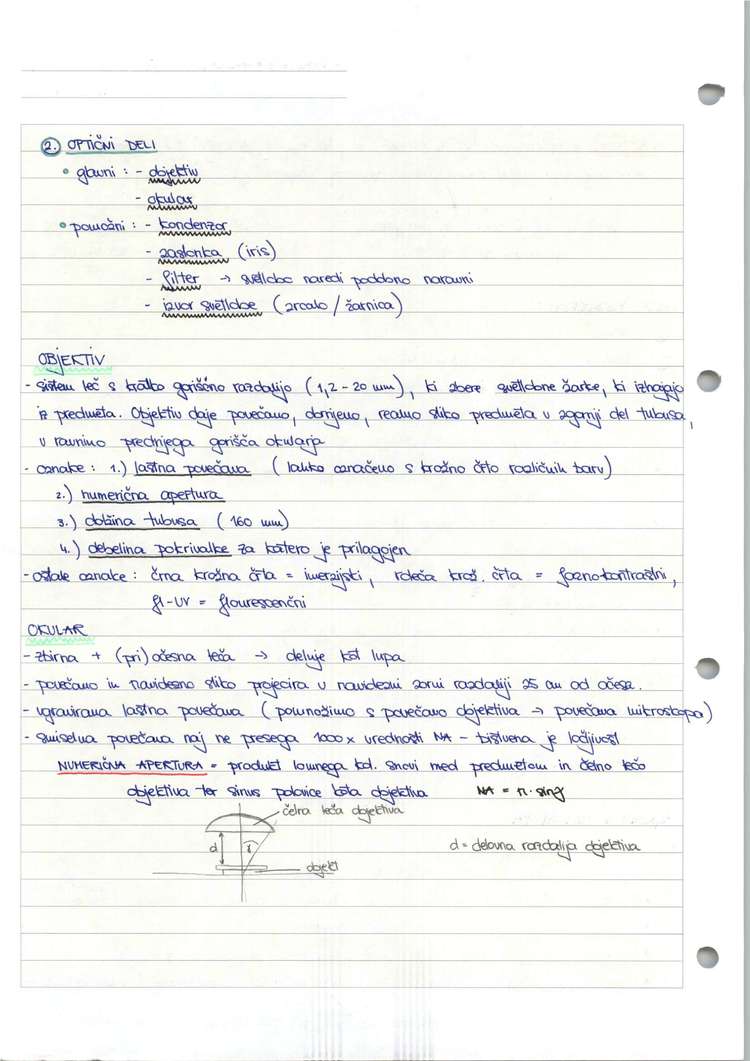 2. OPTIČNI DELI
• glavni : - objektiv
- okular
• pomožni : - kondenzor
- zaslonka (iris)
- filter → svetlobo naredi podobno naravni
- izvor svetlobe (zrcalo / žarnica)
OBJEKTIV
- sistem leč s kratko goriščno razdaljo (1,2 - 20 mm), ki zbere svetlobne žarke, ki izhajajo
iz predmeta. Objektiv daje povečano, obrnjeno, realno sliko predmeta v zgornji del tubusa,
v ravnino prednjega gorišča okularja
- oznake : 1.) lastna povečava (lahko označeno s krožno črto različnih barv)
2.) numerična apertura
3.) dolžina tubusa (160 mm)
4.) debelina pokrivalke za katero je prilagojen
- ostale oznake : črna krožna črta = imerzijski, rdeča krož. črta = fazno-kontrastni,
fl-UV = flourescenčni
OKULAR
- zbirna + (pri)očesna leča → deluje kot lupa
- povečano in navidezno sliko projecira v navidezni zorni razdalji 25 cm od očesa.
- vgravirana lastna povečava (pomnožimo s povečavo objektiva → povečava mikroskopa)
- smiselna povečava naj ne presega 1000x vrednosti NA - bistvena je ločljivost
NUMERIČNA APERTURA = produkt lomnega kol. snovi med predmetom in čelno lečo
objektiva ter sinus polovice kota objektiva NA = n · sinγ
čelna leča objektiva
d γ
d = delovna razdalija objektiva
objekt